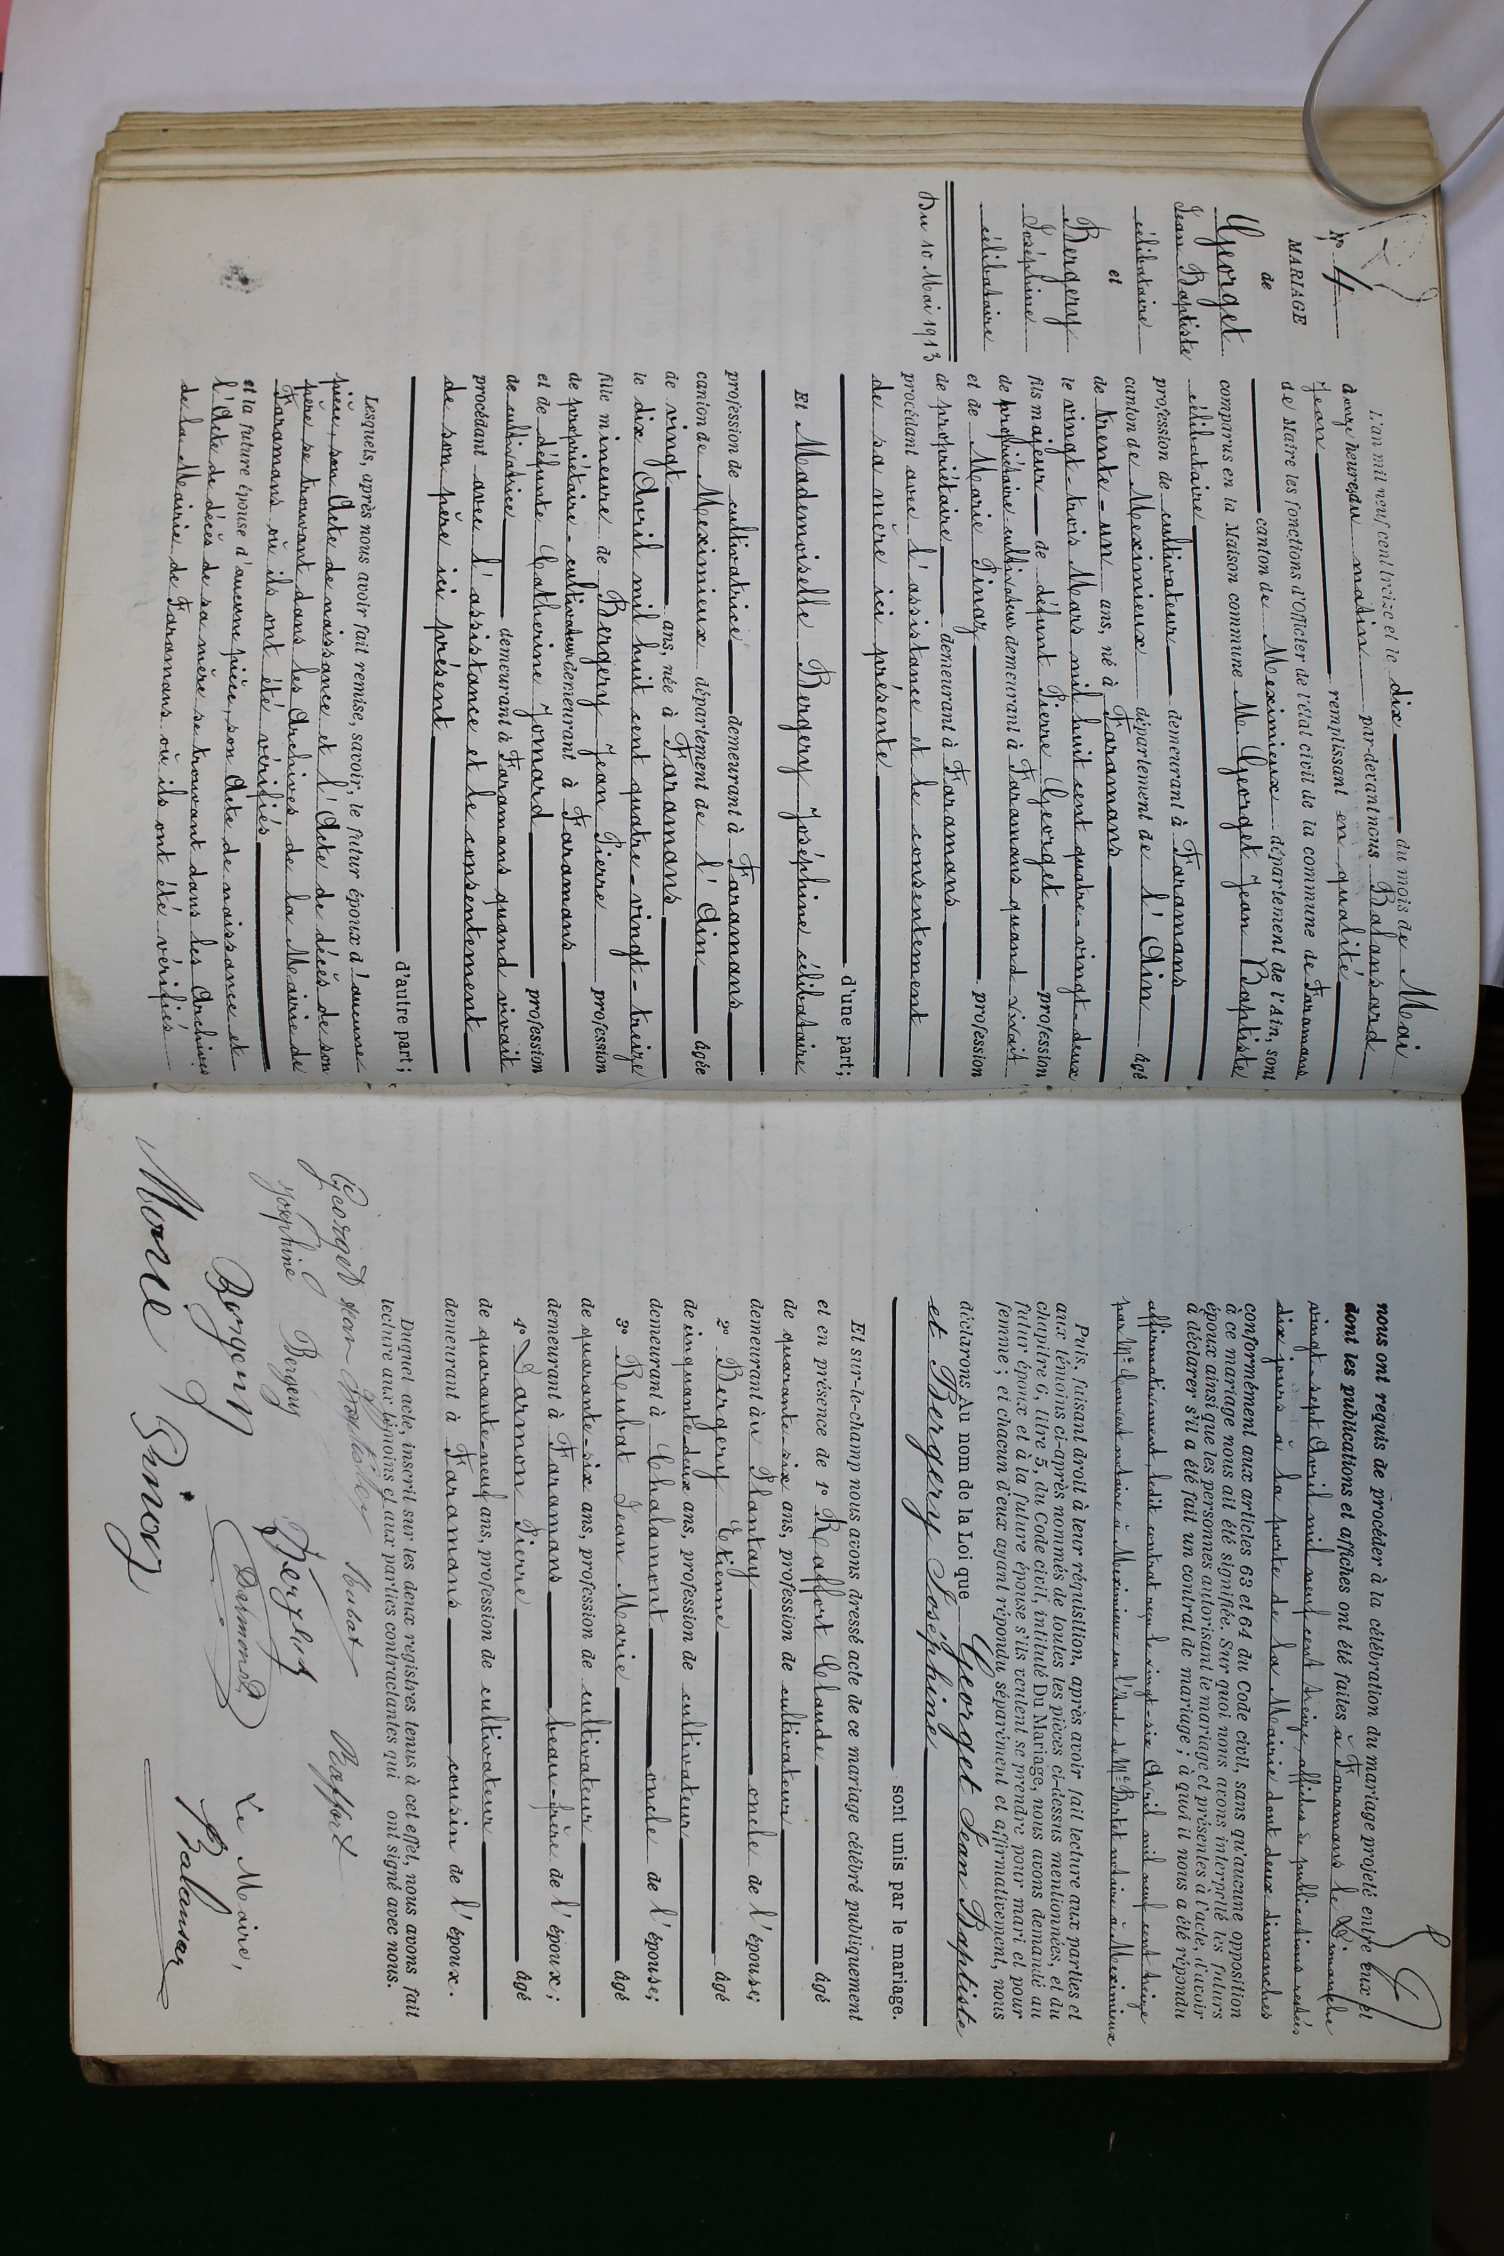 N° 4
MARIAGE
de
Georget
Jean Baptiste
célibataire
et
Bergery
Joséphine
célibataire
Du 10 Mai 1913
L'an mil neuf cent treize et le dix du mois de Mai
à onze heures du matin par-devant nous Balansard
Jean remplissant en qualité
de Maire les fonctions d'Officier de l'état civil de la commune de Faramans
canton de Meximieux département de l'Ain, sont
comparus en la Maison commune M. Georget Jean Baptiste
célibataire
profession de cultivateur demeurant à Faramans
canton de Meximieux département de l'Ain âgé
de trente-un ans, né à Faramans
le vingt-trois Mars mil huit cent quatre-vingt-deux
fils majeur de défunt Pierre Georget profession
de propriétaire-cultivateur demeurant à Faramans quand vivait
et de Marie Pinaz profession
de propriétaire demeurant à Faramans
procédant avec l'assistance et le consentement
de sa mère ici présente
d'une part;
Et Mademoiselle Bergery Joséphine célibataire
profession de cultivatrice demeurant à Faramans
canton de Meximieux département de l'Ain âgée
de vingt ans, née à Faramans
le dix Avril mil huit cent quatre-vingt-treize
fille mineure de Bergery Jean Pierre profession
de propriétaire-cultivateur demeurant à Faramans
et de défunte Catherine Jomard profession
de cultivatrice demeurant à Faramans quand vivait
procédant avec l'assistance et le consentement
de son père ici présent
d'autre part;
Lesquels, après nous avoir fait remise, savoir, le futur époux d'aucune
pièce, son Acte de naissance et l'Acte de décès de son
père se trouvant dans les Archives de la Mairie de
Faramans où ils ont été vérifiés
et la future épouse d'aucune pièce, son Acte de naissance et
l'Acte de décès de sa mère se trouvant dans les Archives
de la Mairie de Faramans où ils ont été vérifiés
nous ont requis de procéder à la célébration du mariage projeté entre eux et
dont les publications et affiches ont été faites à Faramans le Dimanche
vingt-sept Avril mil neuf cent treize, affiches & publications restées
dix jours à la porte de la Mairie dont deux dimanches
conformément aux articles 63 et 64 du Code civil, sans qu'aucune opposition
à ce mariage nous ait été signifiée. Sur quoi nous avons interpellé les futurs
époux ainsi que les personnes autorisant le mariage et présentes à l'acte, d'avoir
à déclarer s'il a été fait un contrat de mariage; à quoi il nous a été répondu
affirmativement, ledit contrat reçu le vingt-six Avril mil neuf cent treize
par Me notaire à Meximieux en l'étude de Me notaire à Meximieux
Puis, faisant droit à leur réquisition, après avoir fait lecture aux parties et
aux témoins ci-après nommés de toutes les pièces ci-dessus mentionnées, et du
chapitre 6, titre 5, du Code civil, intitulé Du Mariage, nous avons demandé au
futur époux et à la future épouse s'ils veulent se prendre pour mari et pour
femme; et chacun d'eux ayant répondu séparément et affirmativement, nous
déclarons Au nom de la Loi que Georget Jean Baptiste
et Bergery Joséphine
sont unis par le mariage.
Et sur-le-champ nous avons dressé acte de ce mariage célébré publiquement
et en présence de 1° Raffort Claude âgé
de quarante-six ans, profession de cultivateur
demeurant au Plantay oncle de l'épouse;
2° Bergery Etienne âgé
de cinquante-deux ans, profession de cultivateur
demeurant à Chalamont oncle de l'épouse;
3° Rubat Jean Marie âgé
de quarante-six ans, profession de cultivateur
demeurant à Faramans beau-frère de l'époux;
4° Darmon Pierre âgé
de quarante-neuf ans, profession de cultivateur
demeurant à Faramans cousin de l'époux.
Duquel acte, inscrit sur les deux registres tenus à cet effet, nous avons fait
lecture aux témoins et aux parties contractantes qui ont signé avec nous.
Georget Jean Baptiste Rubat Raffort
Joséphine Bergery
Le Maire,
Marie Pinaz